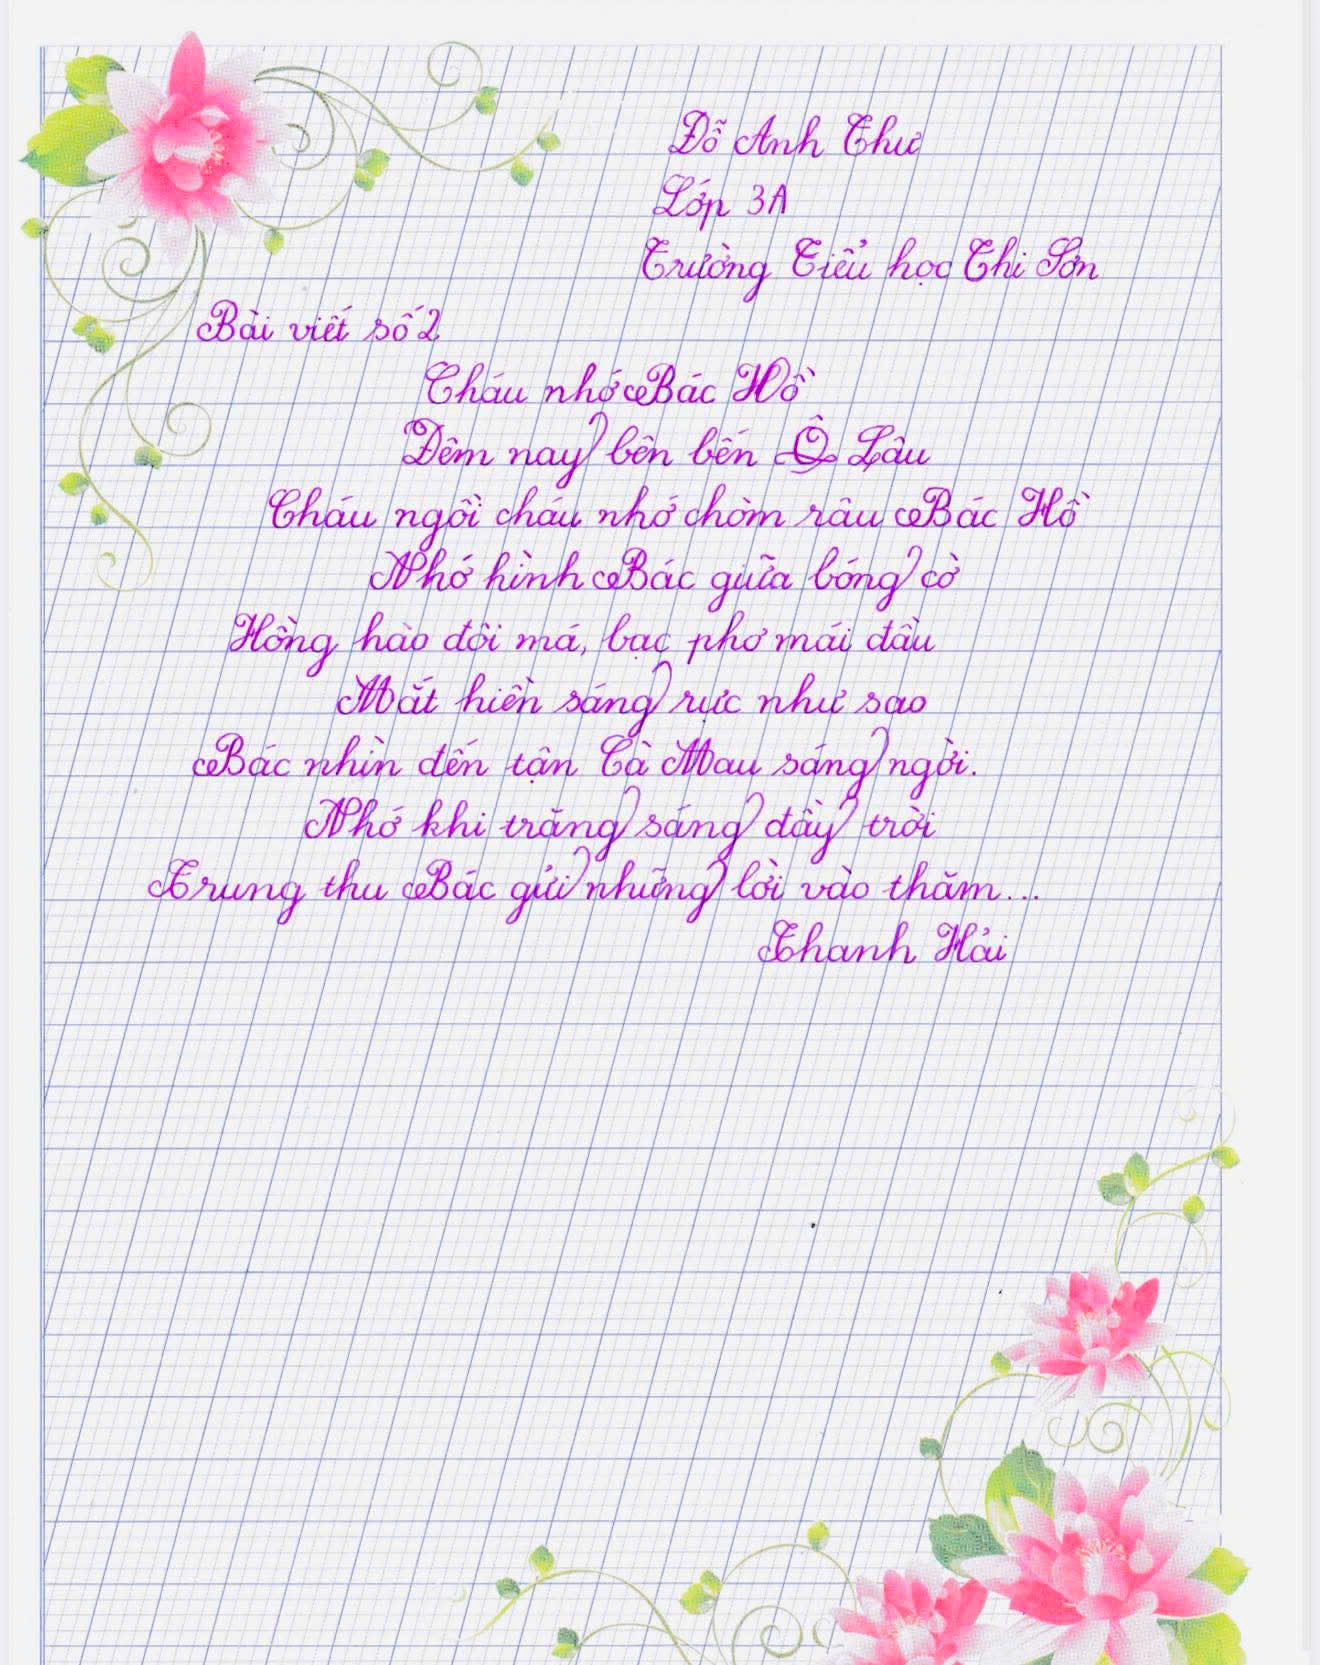 Đỗ Anh Thư
Lớp 3A
Trường Tiểu học Thi Sơn
Bài viết số 2
Cháu nhớ Bác Hồ
Đêm nay bên bến Ô Lâu
Cháu ngồi cháu nhớ chòm râu Bác Hồ
Nhớ hình Bác giữa bóng cờ
Hồng hào đôi má, bạc phơ mái đầu
Mắt hiền sáng rực như sao
Bác nhìn đến tận Cà Mau sáng ngời.
Nhớ khi trăng sáng đầy trời
Trung thu Bác gửi những lời vào thăm...
Thanh Hải